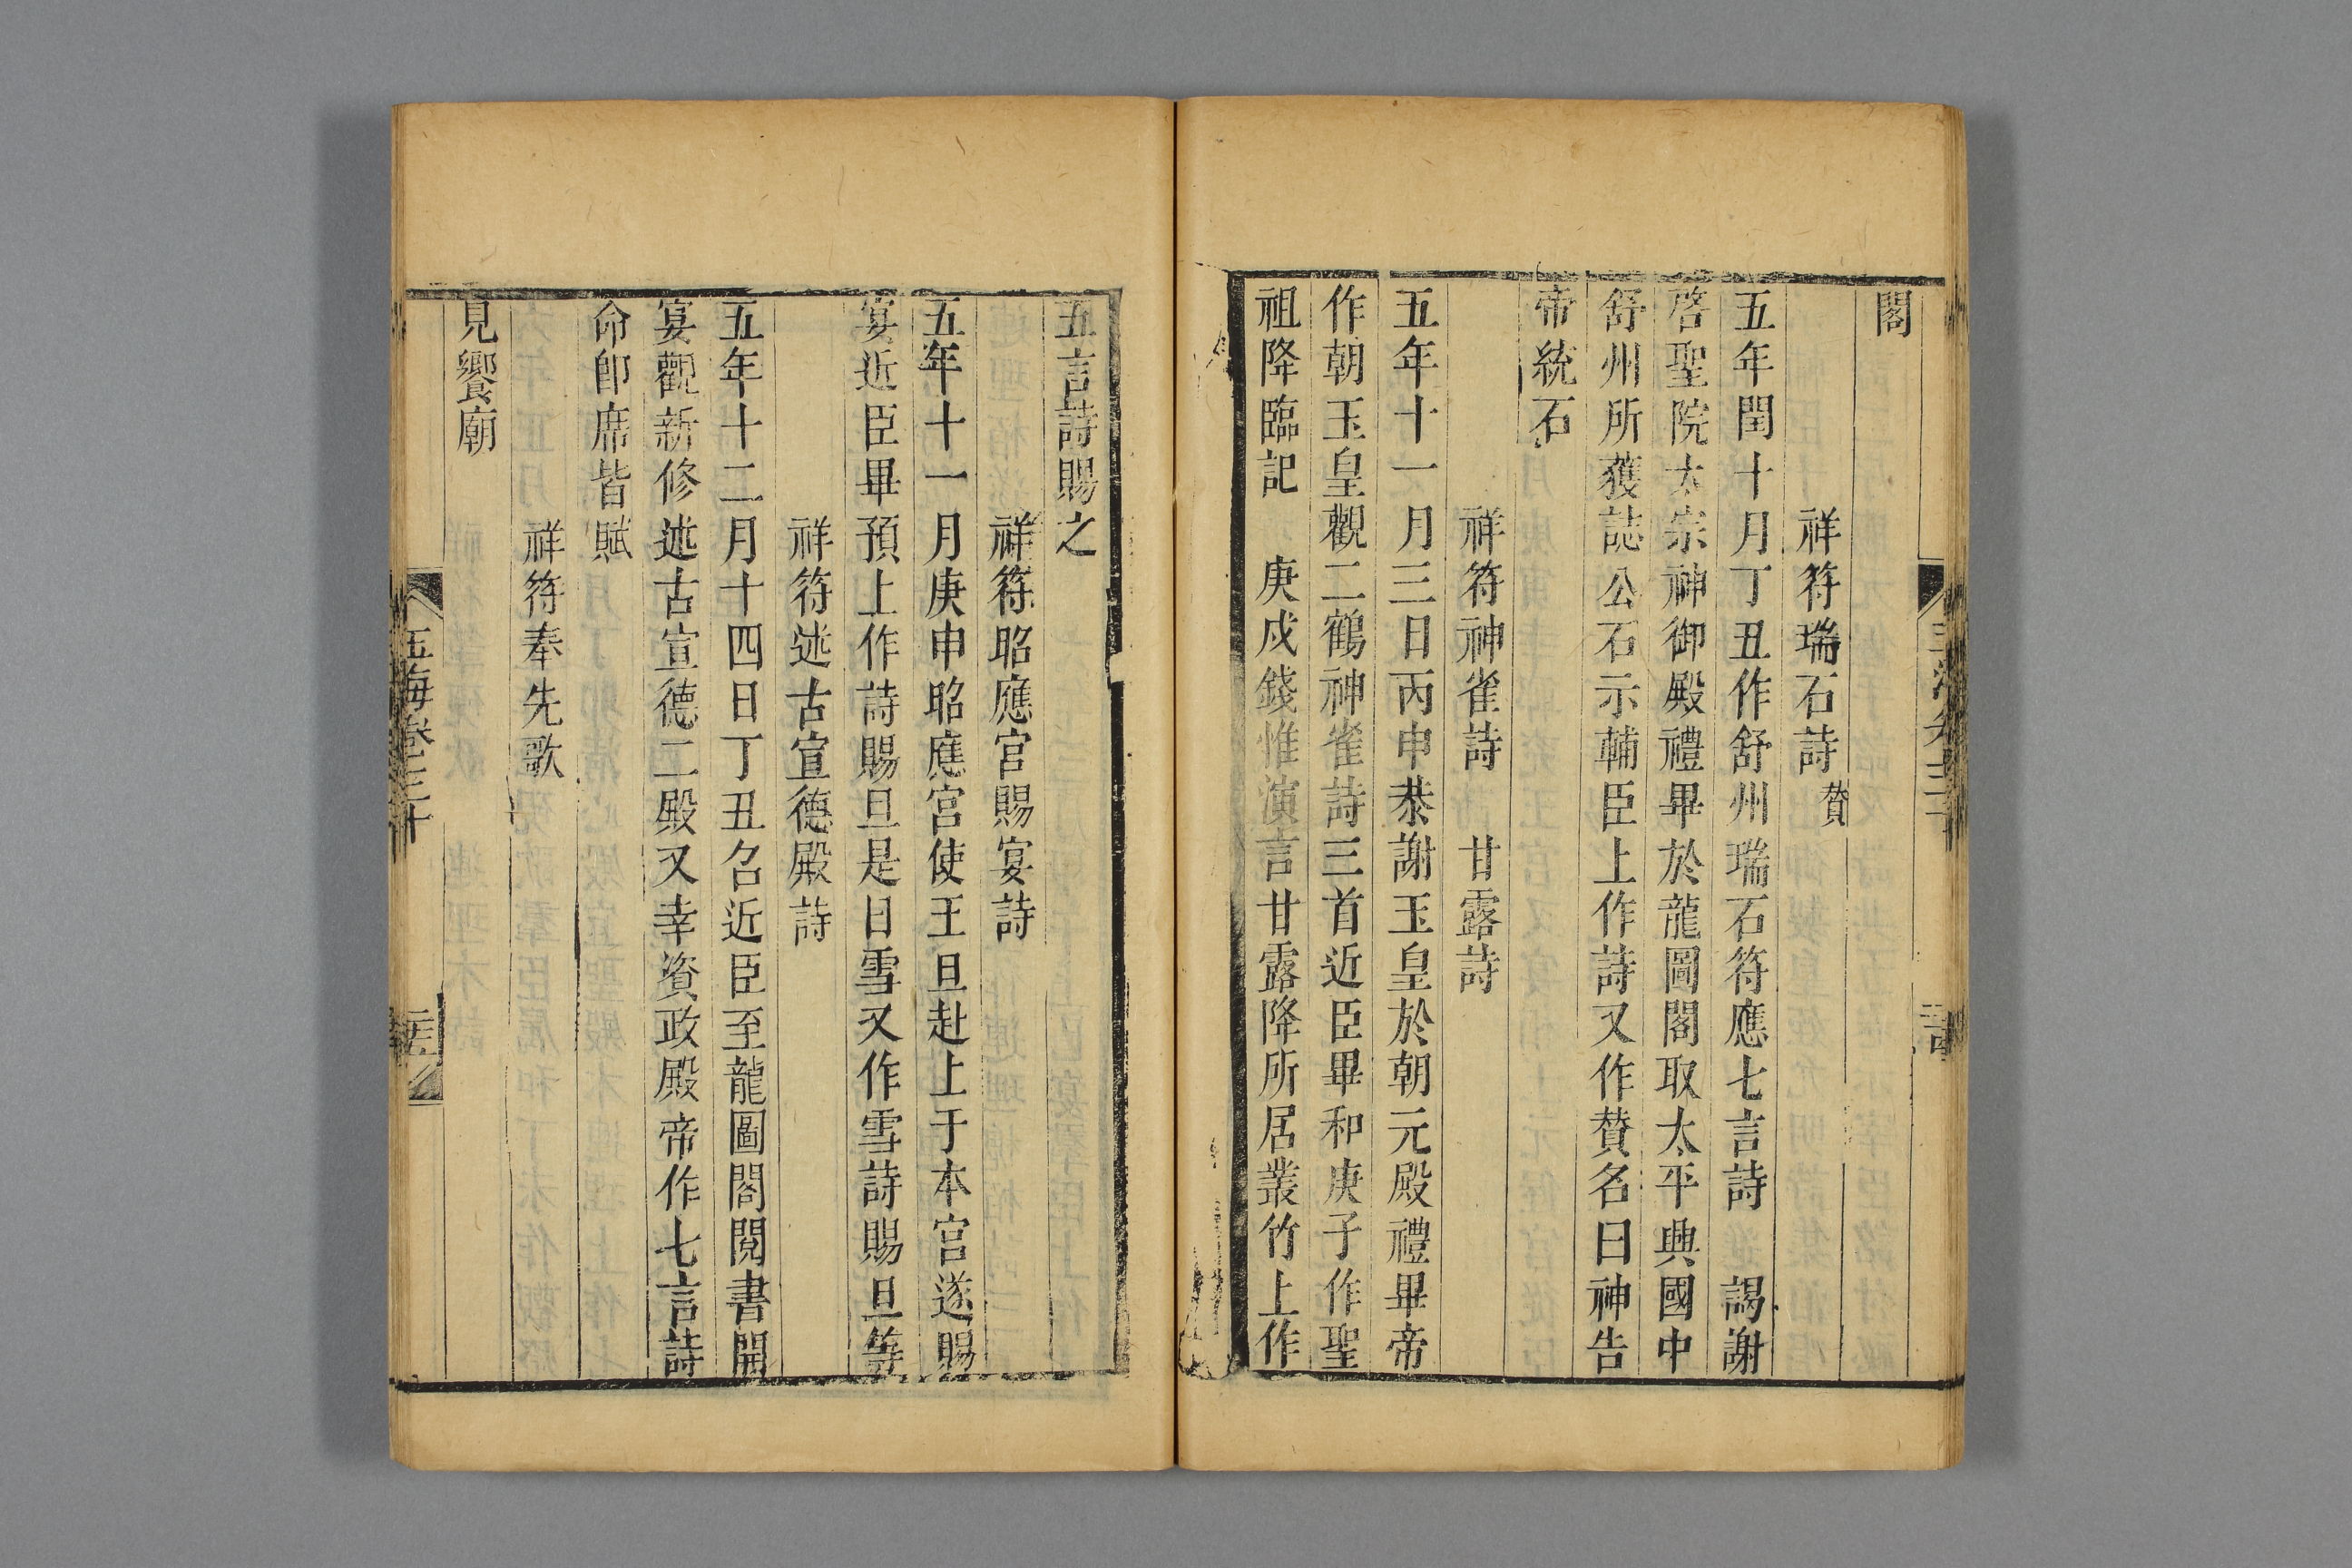 閣
祥符瑞石詩 賛
五年閏十月丁丑作舒州瑞石符應七言詩 謁謝
啓聖院太宗神御殿禮畢於龍圖閣取太平興國中
舒州所獲誌公石示輔臣上作詩又作賛名曰神告
帝統石
祥符神雀詩 甘露詩
五年十一月三日丙申恭謝玉皇於朝元殿禮畢帝
作朝玉皇觀二鶴神雀詩三首近臣畢和庚子作聖
祖降臨記 庚戌錢惟演言甘露降所居叢竹上作
五言詩賜之
祥符昭應宮賜宴詩
五年十一月庚申昭應宮使王旦赴上于本宮遂賜
宴近臣畢預上作詩賜旦是日雪又作雪詩賜旦等
祥符述古宣德殿詩
五年十二月十四日丁丑召近臣至龍圖閣閱書開
宴觀新修述古宣德二殿又幸資政殿帝作七言詩
命即席皆賦
祥符奉先歌
見饗廟
玉海卷三十